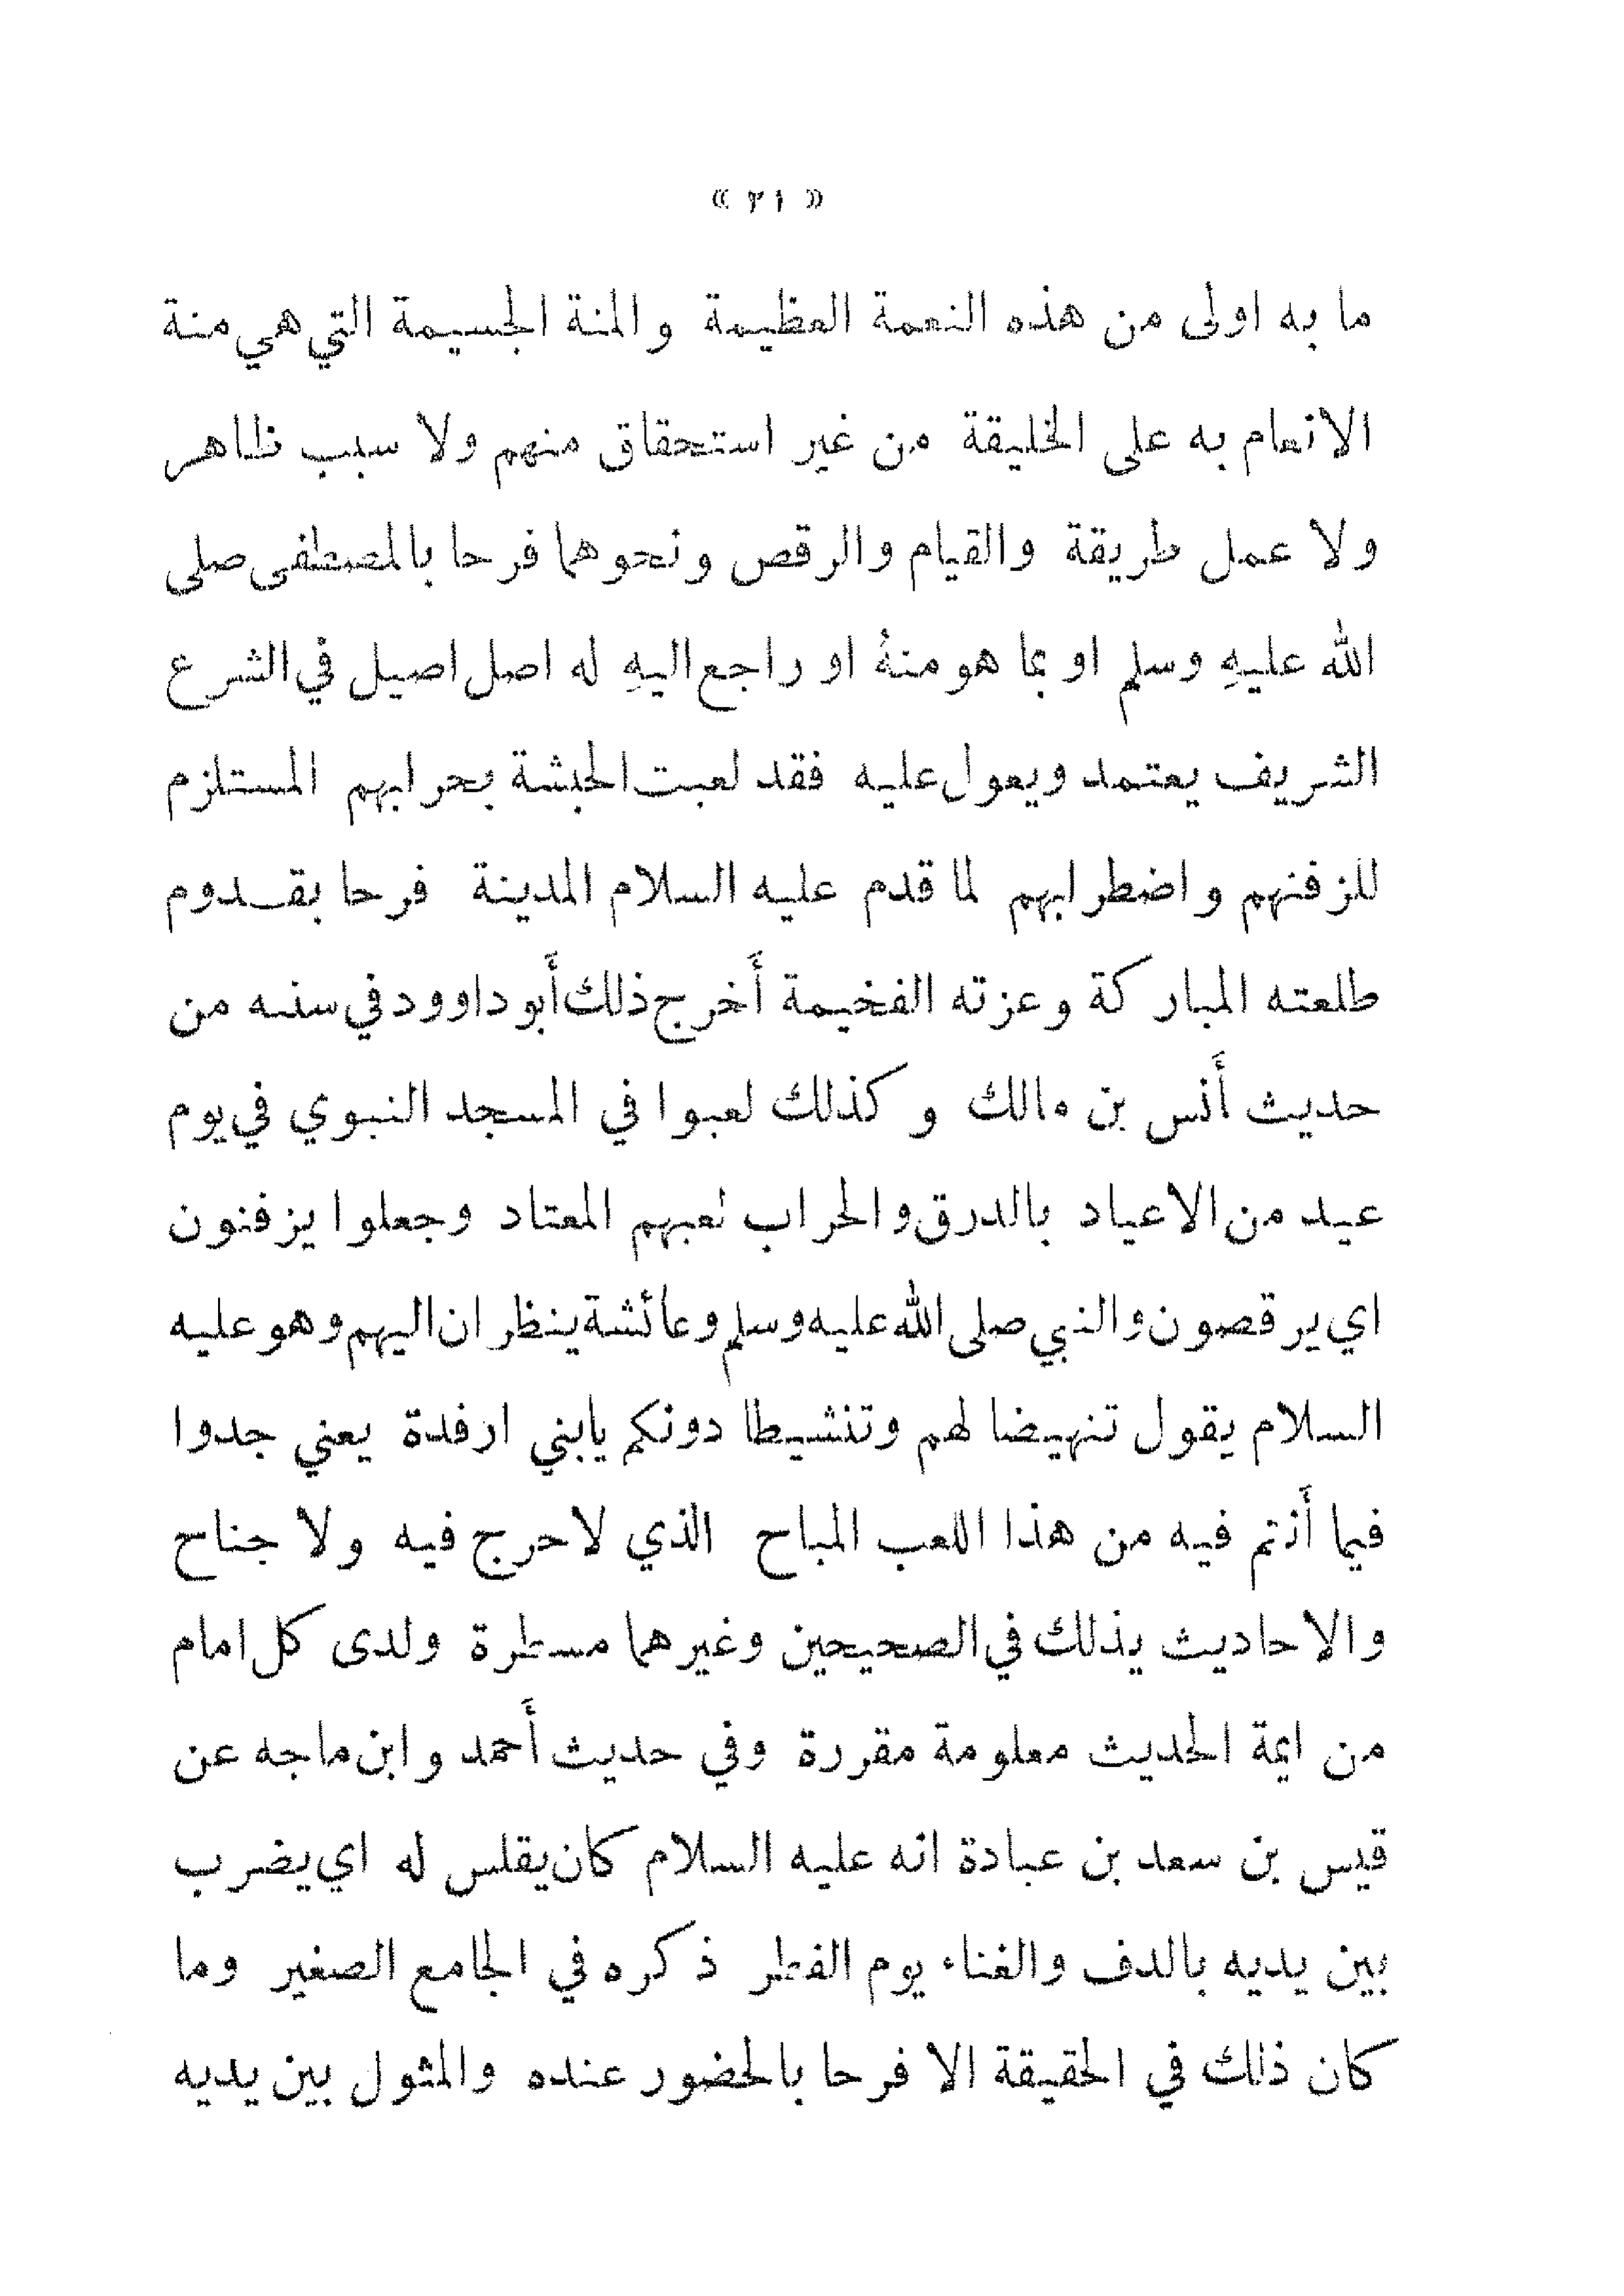 « ٢١ »
ما به اولى من هذه النعمة العظيمة والمنة الجسيمة التي هي منة
الانعام به على الخليقة من غير استحقاق منهم ولا سبب ظاهر
ولا عمل طريقة والقيام والرقص ونحوهما فرحا بالمصطفى صلى
الله عليهِ وسلم او بما هو منهُ او راجع اليهِ له اصل اصيل في الشرع
الشريف يعتمد ويعول عليه فقد لعبت الحبشة بحرابهم المستلزم
للزفنهم واضطرابهم لما قدم عليه السلام المدينة فرحا بقدوم
طلعته المباركة وعزته الفخيمة أَخرج ذلك أَبو داوود في سننه من
حديث أَنس بن مالك وكذلك لعبوا في المسجد النبوي في يوم
عيد من الاعياد بالدرق والحراب لعبهم المعتاد وجعلوا يزفنون
اي يرقصون والنبي صلى الله عليه وسلم وعائشة ينظران اليهم وهو عليه
السلام يقول تنهيضا لهم وتنشيطا دونكم يابني ارفدة يعني جدوا
فيما أَنتم فيه من هذا اللعب المباح الذي لا حرج فيه ولا جناح
والاحاديث بذلك في الصحيحين وغيرهما مسطرة ولدى كل امام
من ايمة الحديث معلومة مقررة وفي حديث أَحمد وابن ماجه عن
قيس بن سعد بن عبادة انه عليه السلام كان يقلس له اي يضرب
بين يديه بالدف والغناء يوم الفطر ذكره في الجامع الصغير وما
كان ذلك في الحقيقة الا فرحا بالحضور عنده والمثول بين يديه